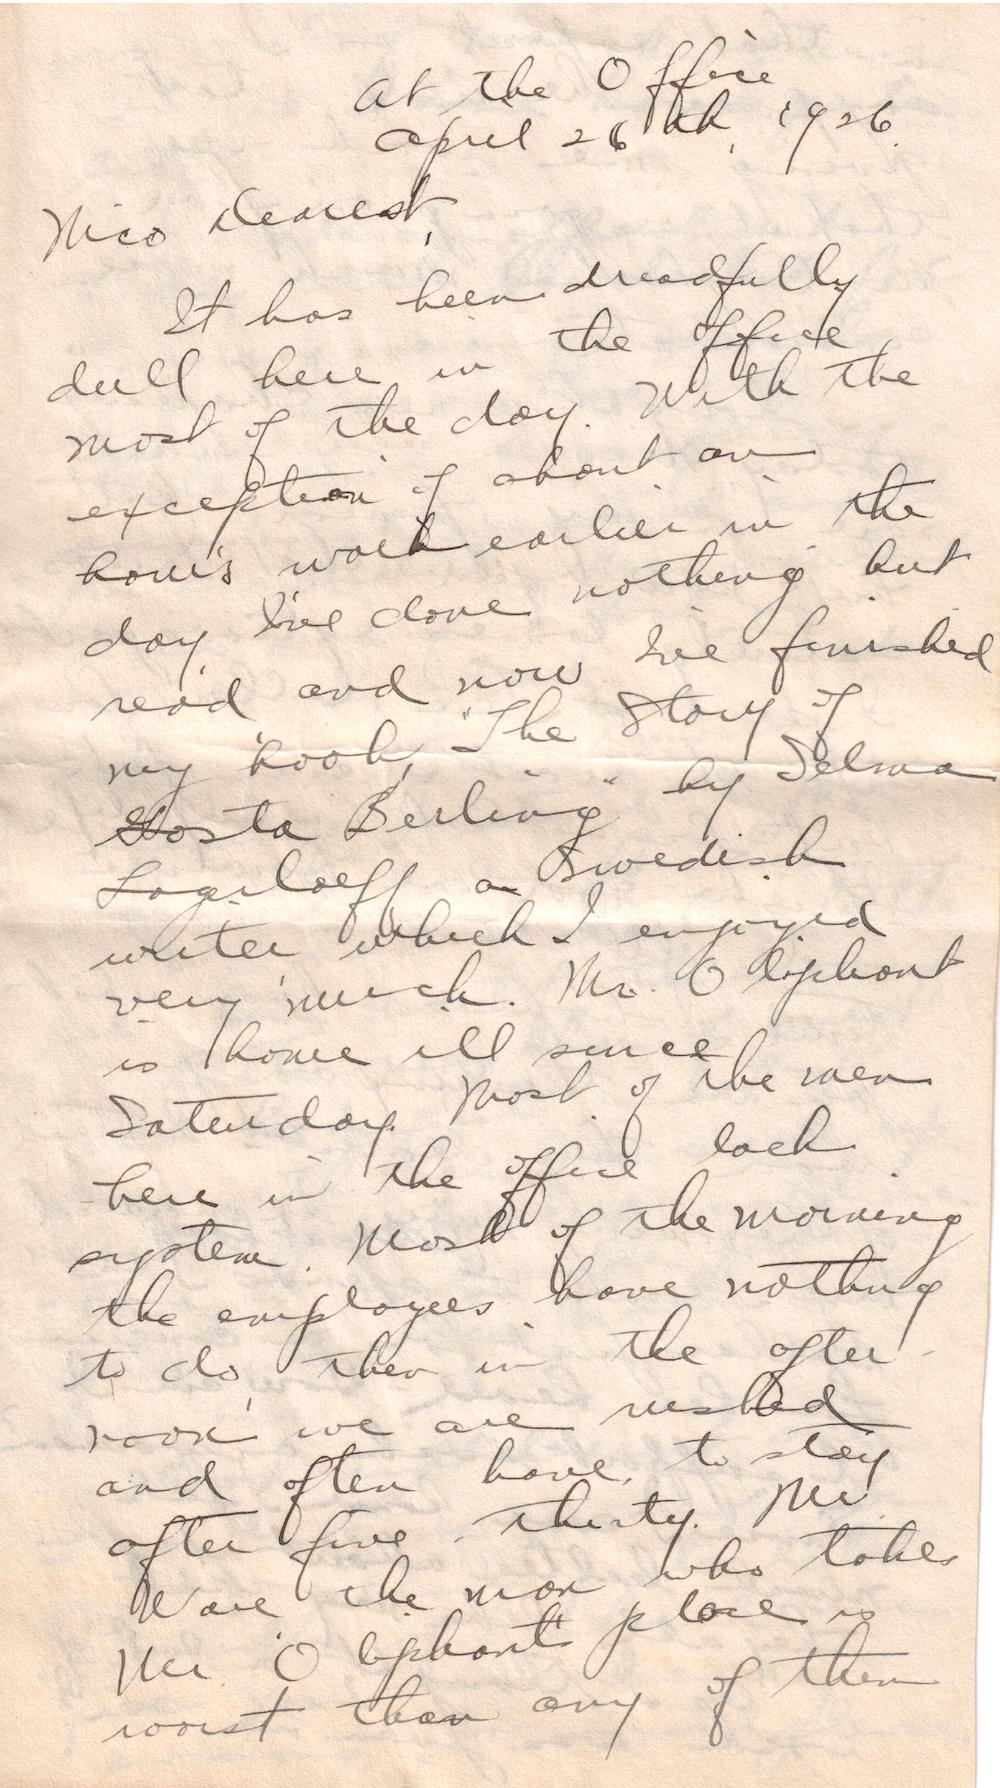 At the Office
April 26th, 1926.
Nico Dearest,
It has been dreadfully
dull here in the office
most of the day. With the
exception of about an
hour's work earlier in the
day I've done nothing but
read and now I've finished
my book, "The Story of
Gosta Berling" by Selma
Lagerloeff a Swedish
writer which I enjoyed
very much. Mr. Oliphant
is home ill since
Saturday. Most of the men
here in the office lack
system. Most of the morning
the employees have nothing
to do, then in the after-
noon we are rushed
and often have to stay
after five thirty. Mr.
Ware the man who takes
Mr. Oliphant's place is
worst than any of them